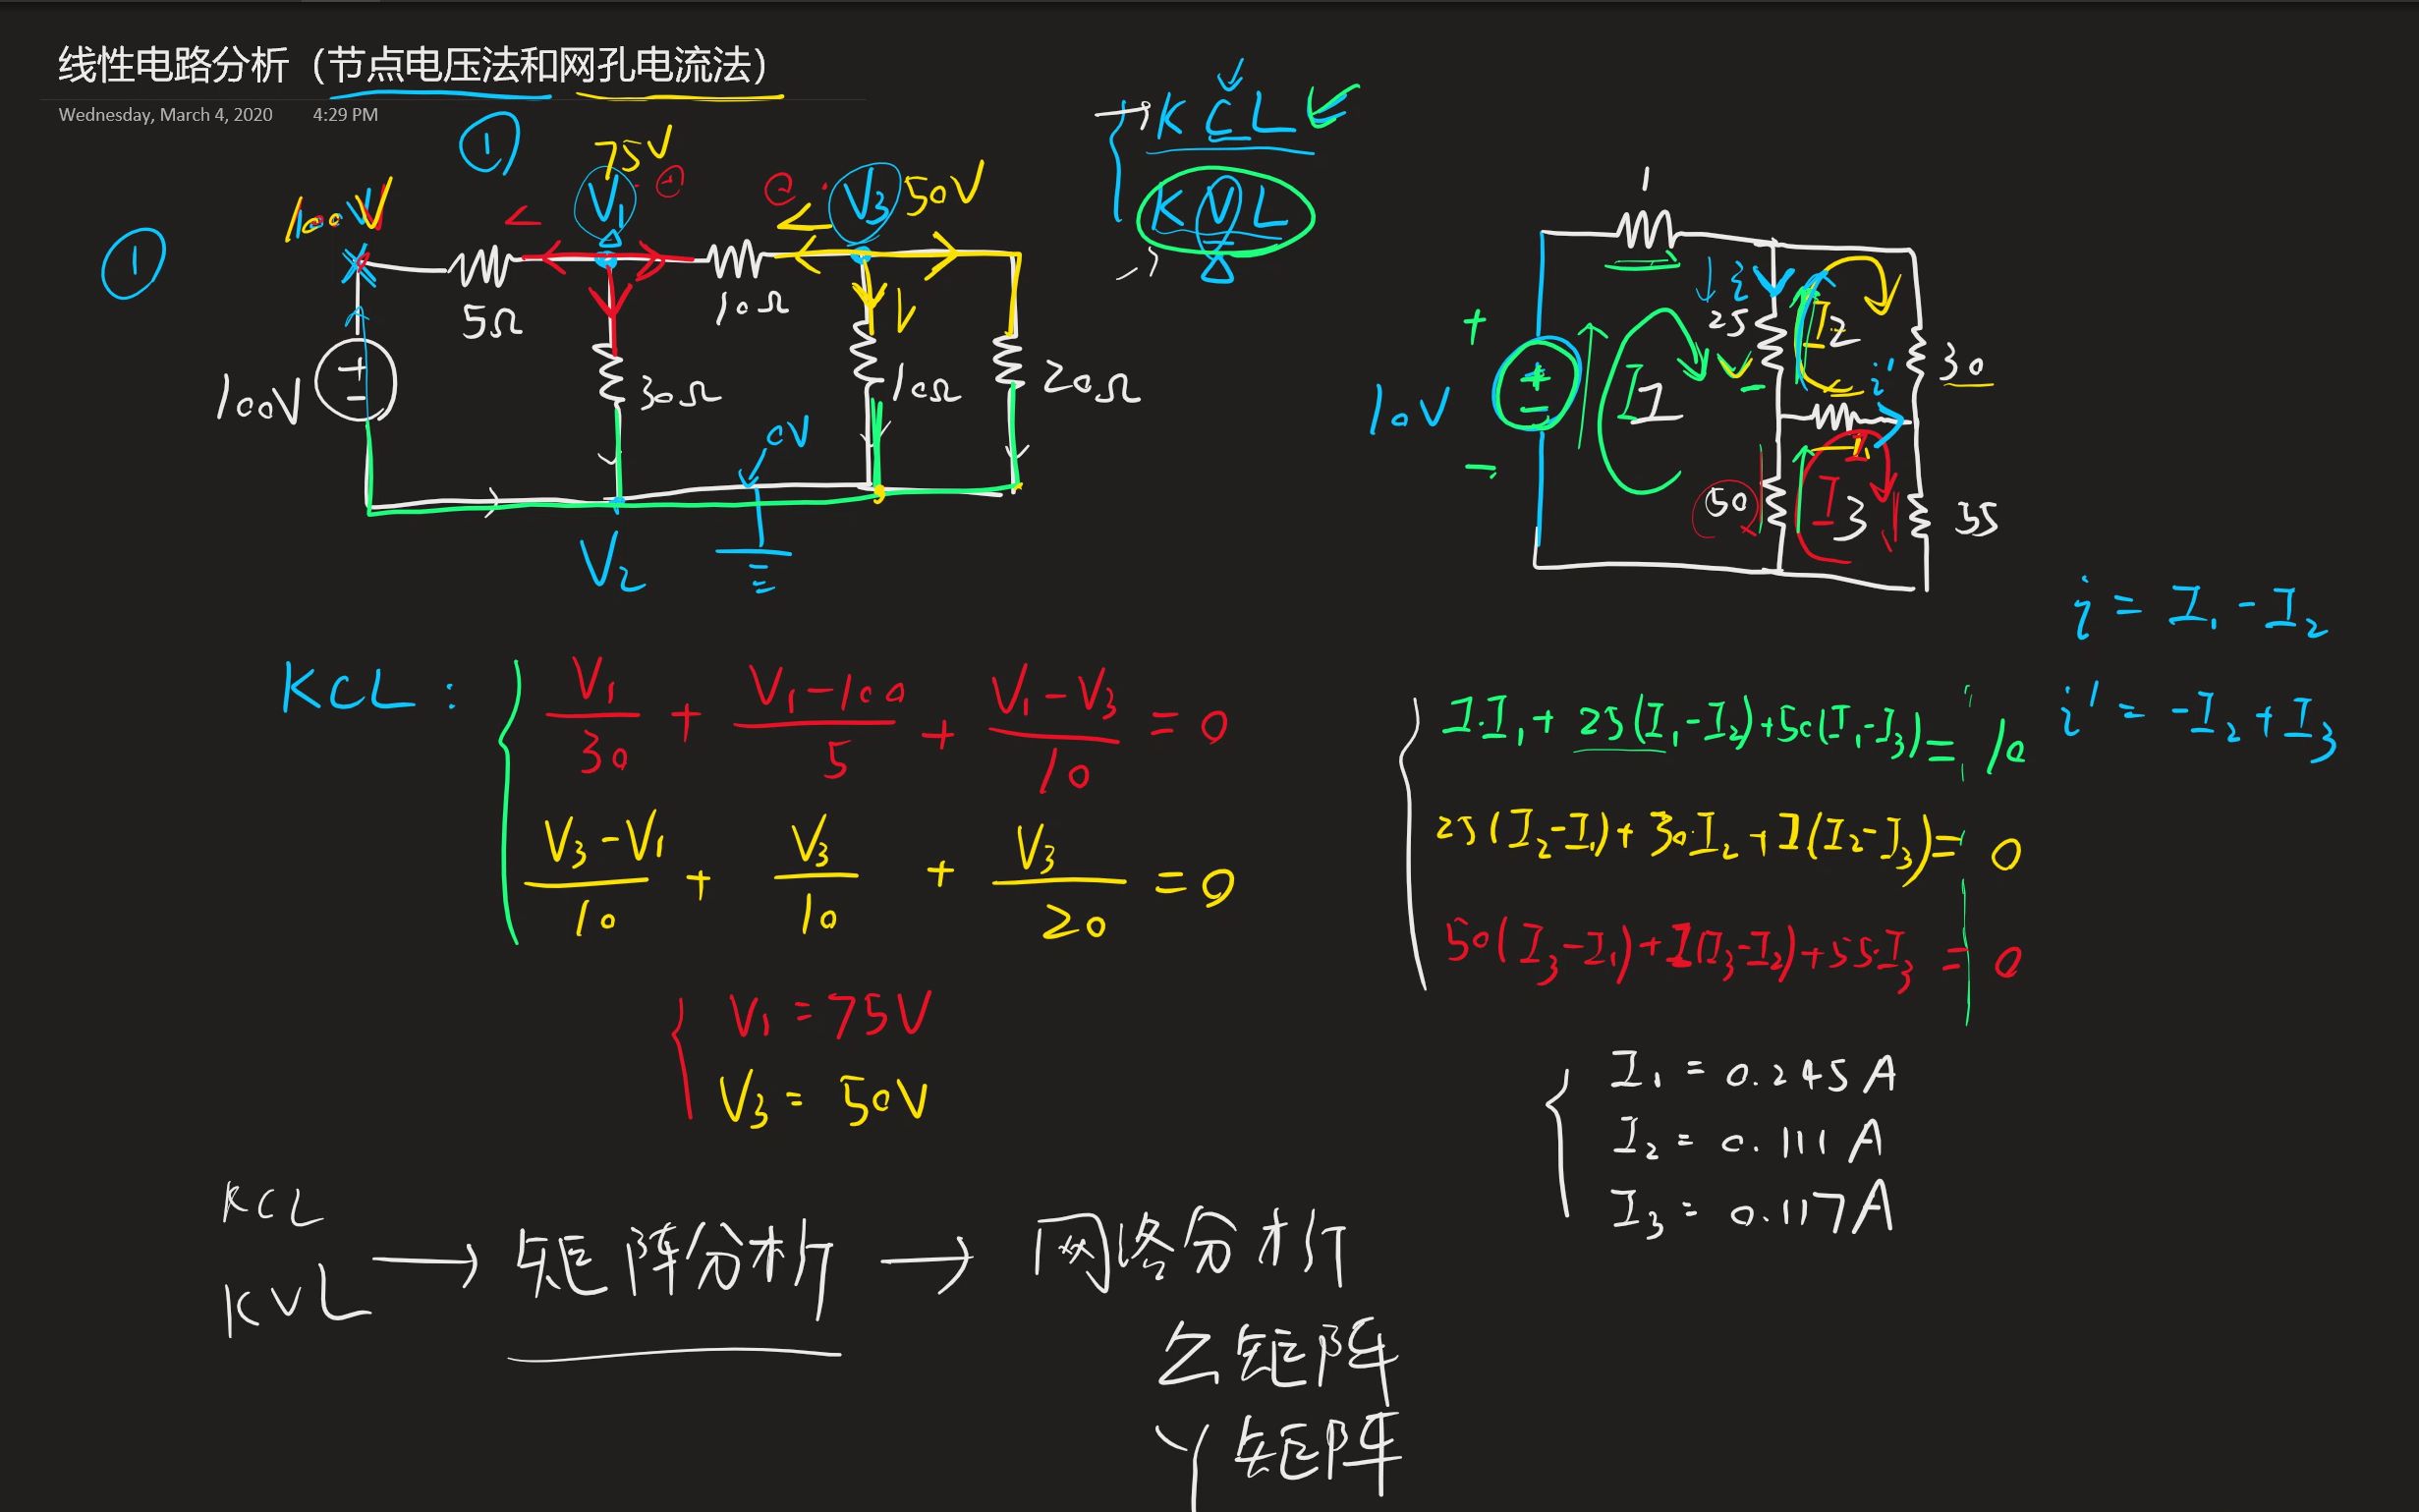 线性电路分析（节点电压法和网孔电流法）
Wednesday, March 4, 2020 4:29 PM
①
①
100V
75V
V₁
V₃
50V
5Ω
10Ω
100V
+
-
30Ω
10Ω
20Ω
V
0V
V₂
KCL
KVL
1
+
-
10V
+
-
i
25
-
I1
I2
i'
30
1
50
I3
55
i = I₁ - I₂
i' = -I₂ + I₃
KCL:
V₁/30 + (V₁-100)/5 + (V₁-V₃)/10 = 0
(V₃-V₁)/10 + V₃/10 + V₃/20 = 0
V₁ = 75V
V₃ = 50V
1·I₁ + 25(I₁-I₂)+50(I₁-I₃) = 10
25(I₂-I₁)+30·I₂+1(I₂-I₃) = 0
50(I₃-I₁)+1(I₃-I₂)+55·I₃ = 0
I₁ = 0.245A
I₂ = 0.111A
I₃ = 0.117A
KCL
KVL → 矩阵分析 → 网络分析
Z矩阵
Y矩阵